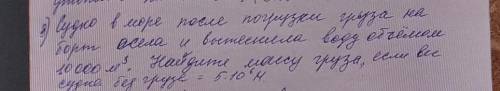 3) Судно в море после погрузки груза на
борт осела и вытеснила воду объёмом
10000 м³. Найдите массу груза, если вес
судна без груза = 5·10⁶ Н